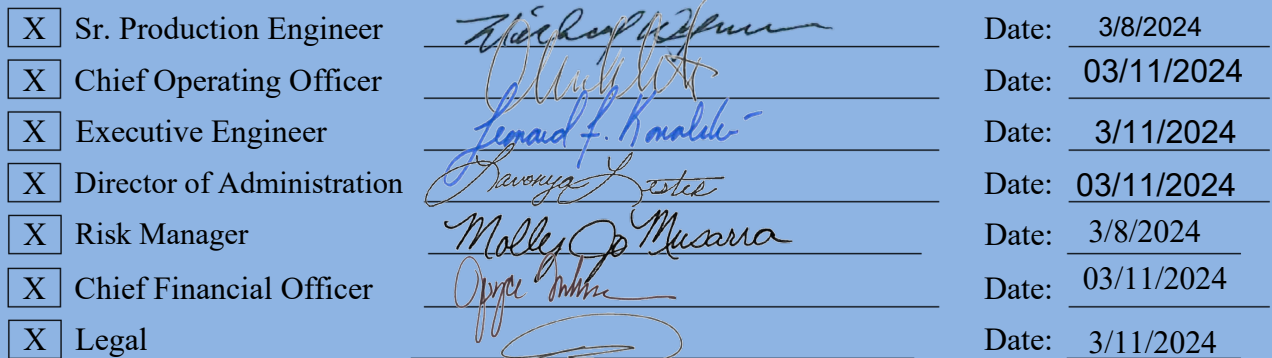 X Sr. Production Engineer Michael Date: 3/8/2024
X Chief Operating Officer Date: 03/11/2024
X Executive Engineer Leonard F. Date: 3/11/2024
X Director of Administration Lavonya Lester Date: 03/11/2024
X Risk Manager Molly Jo Musarra Date: 3/8/2024
X Chief Financial Officer Joyce Date: 03/11/2024
X Legal Date: 3/11/2024